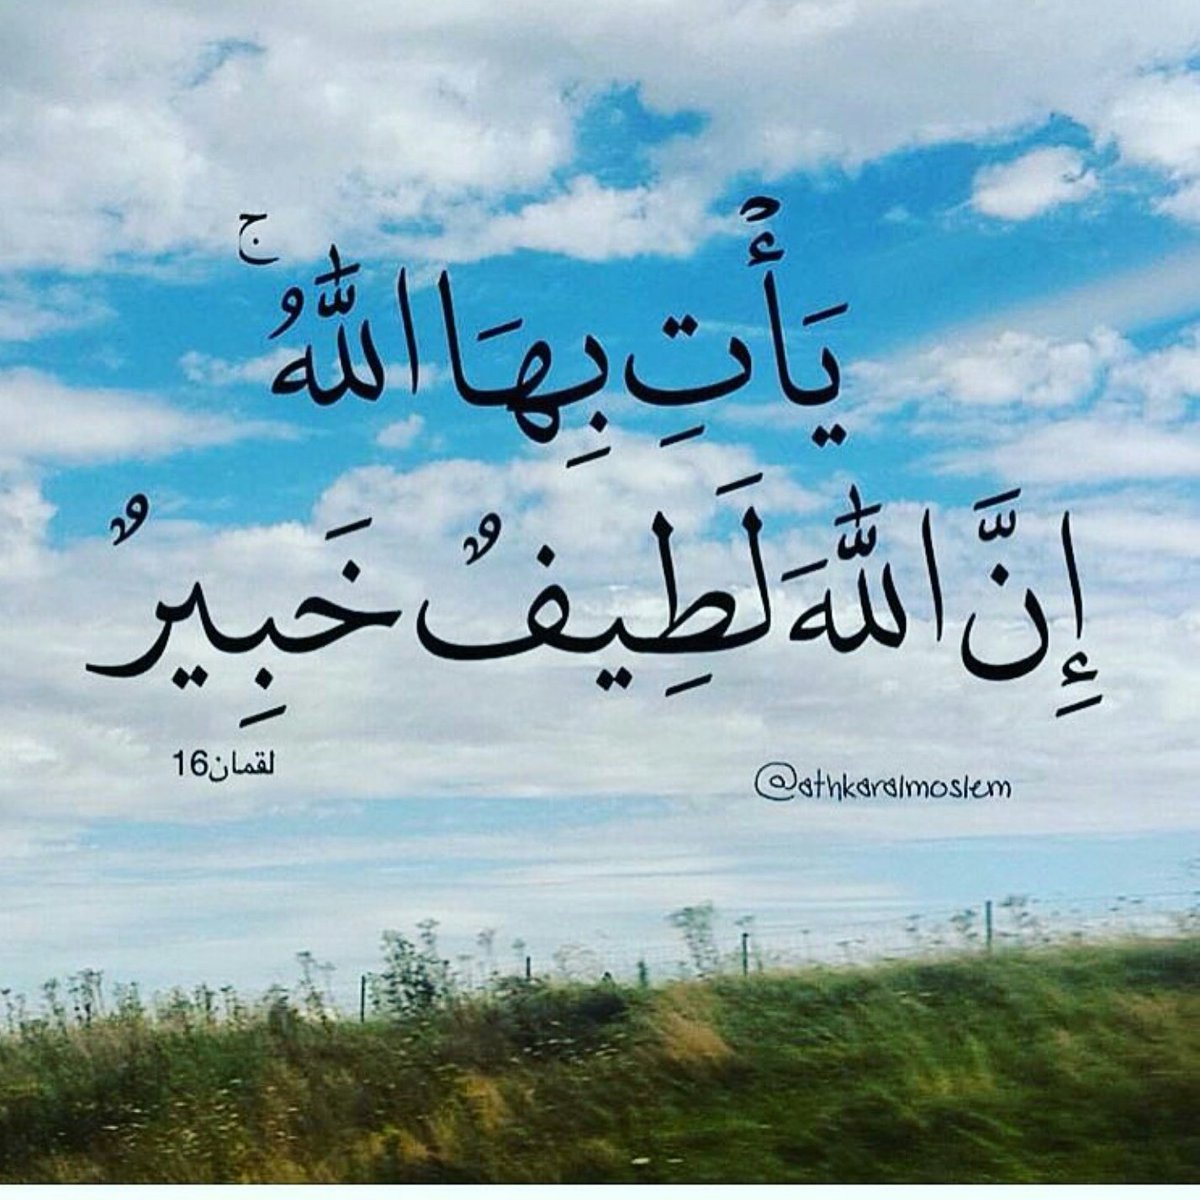 يَأْتِ بِهَا اللَّهُ ۚ
إِنَّ اللَّهَ لَطِيفٌ خَبِيرٌ
لقمان16
@athkaralmoslem